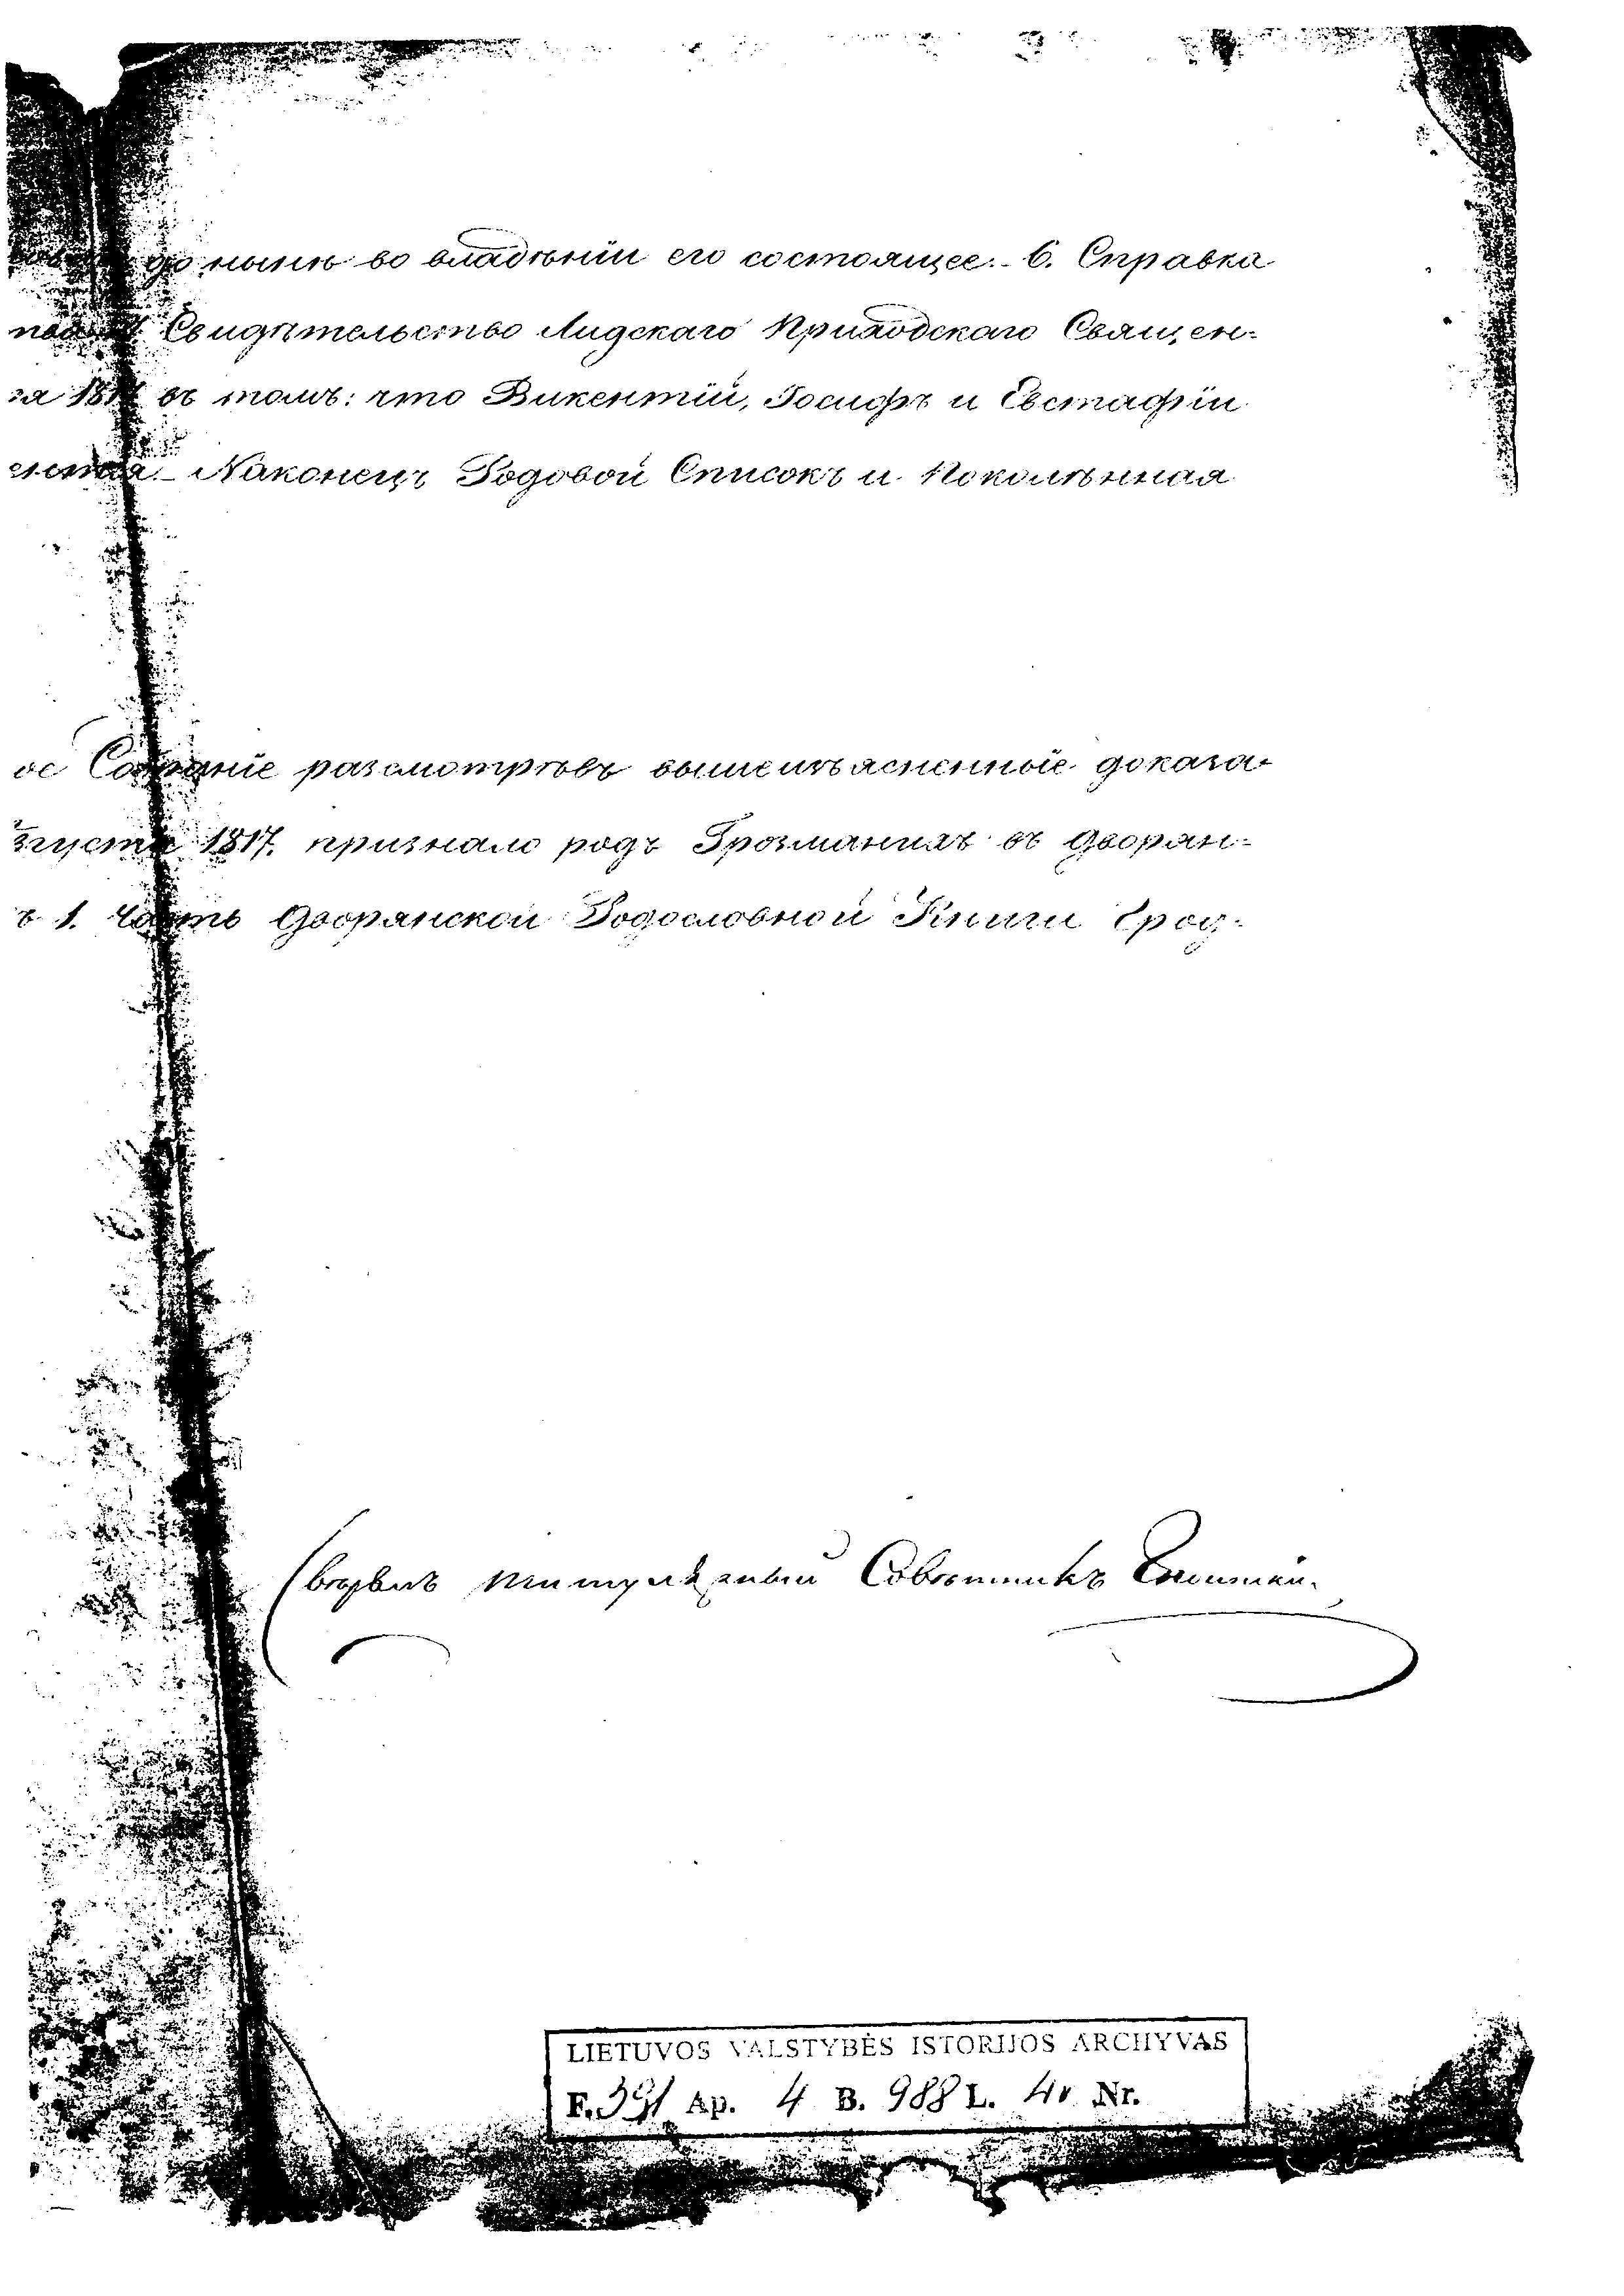 до нынѣ во владѣніи его состоящее. 6. Справка
Свидѣтельство Лидскаго Приходскаго Священ-
въ томъ: что Викентій, Іосифъ и Евстафіи
Наконецъ Родовой Списокъ и Поколѣнная
ое Собраніе разсмотрѣвъ вышеизъясненные доказа-
густа 1817. признало родъ Грозманихъ въ дворян-
ъ 1. Часть Дворянской Родословной Книги Грод-
Титулярный Совѣтникъ
LIETUVOS VALSTYBĖS ISTORIJOS ARCHYVAS
F. 391 Ap. 4 B. 988 L. Nr.